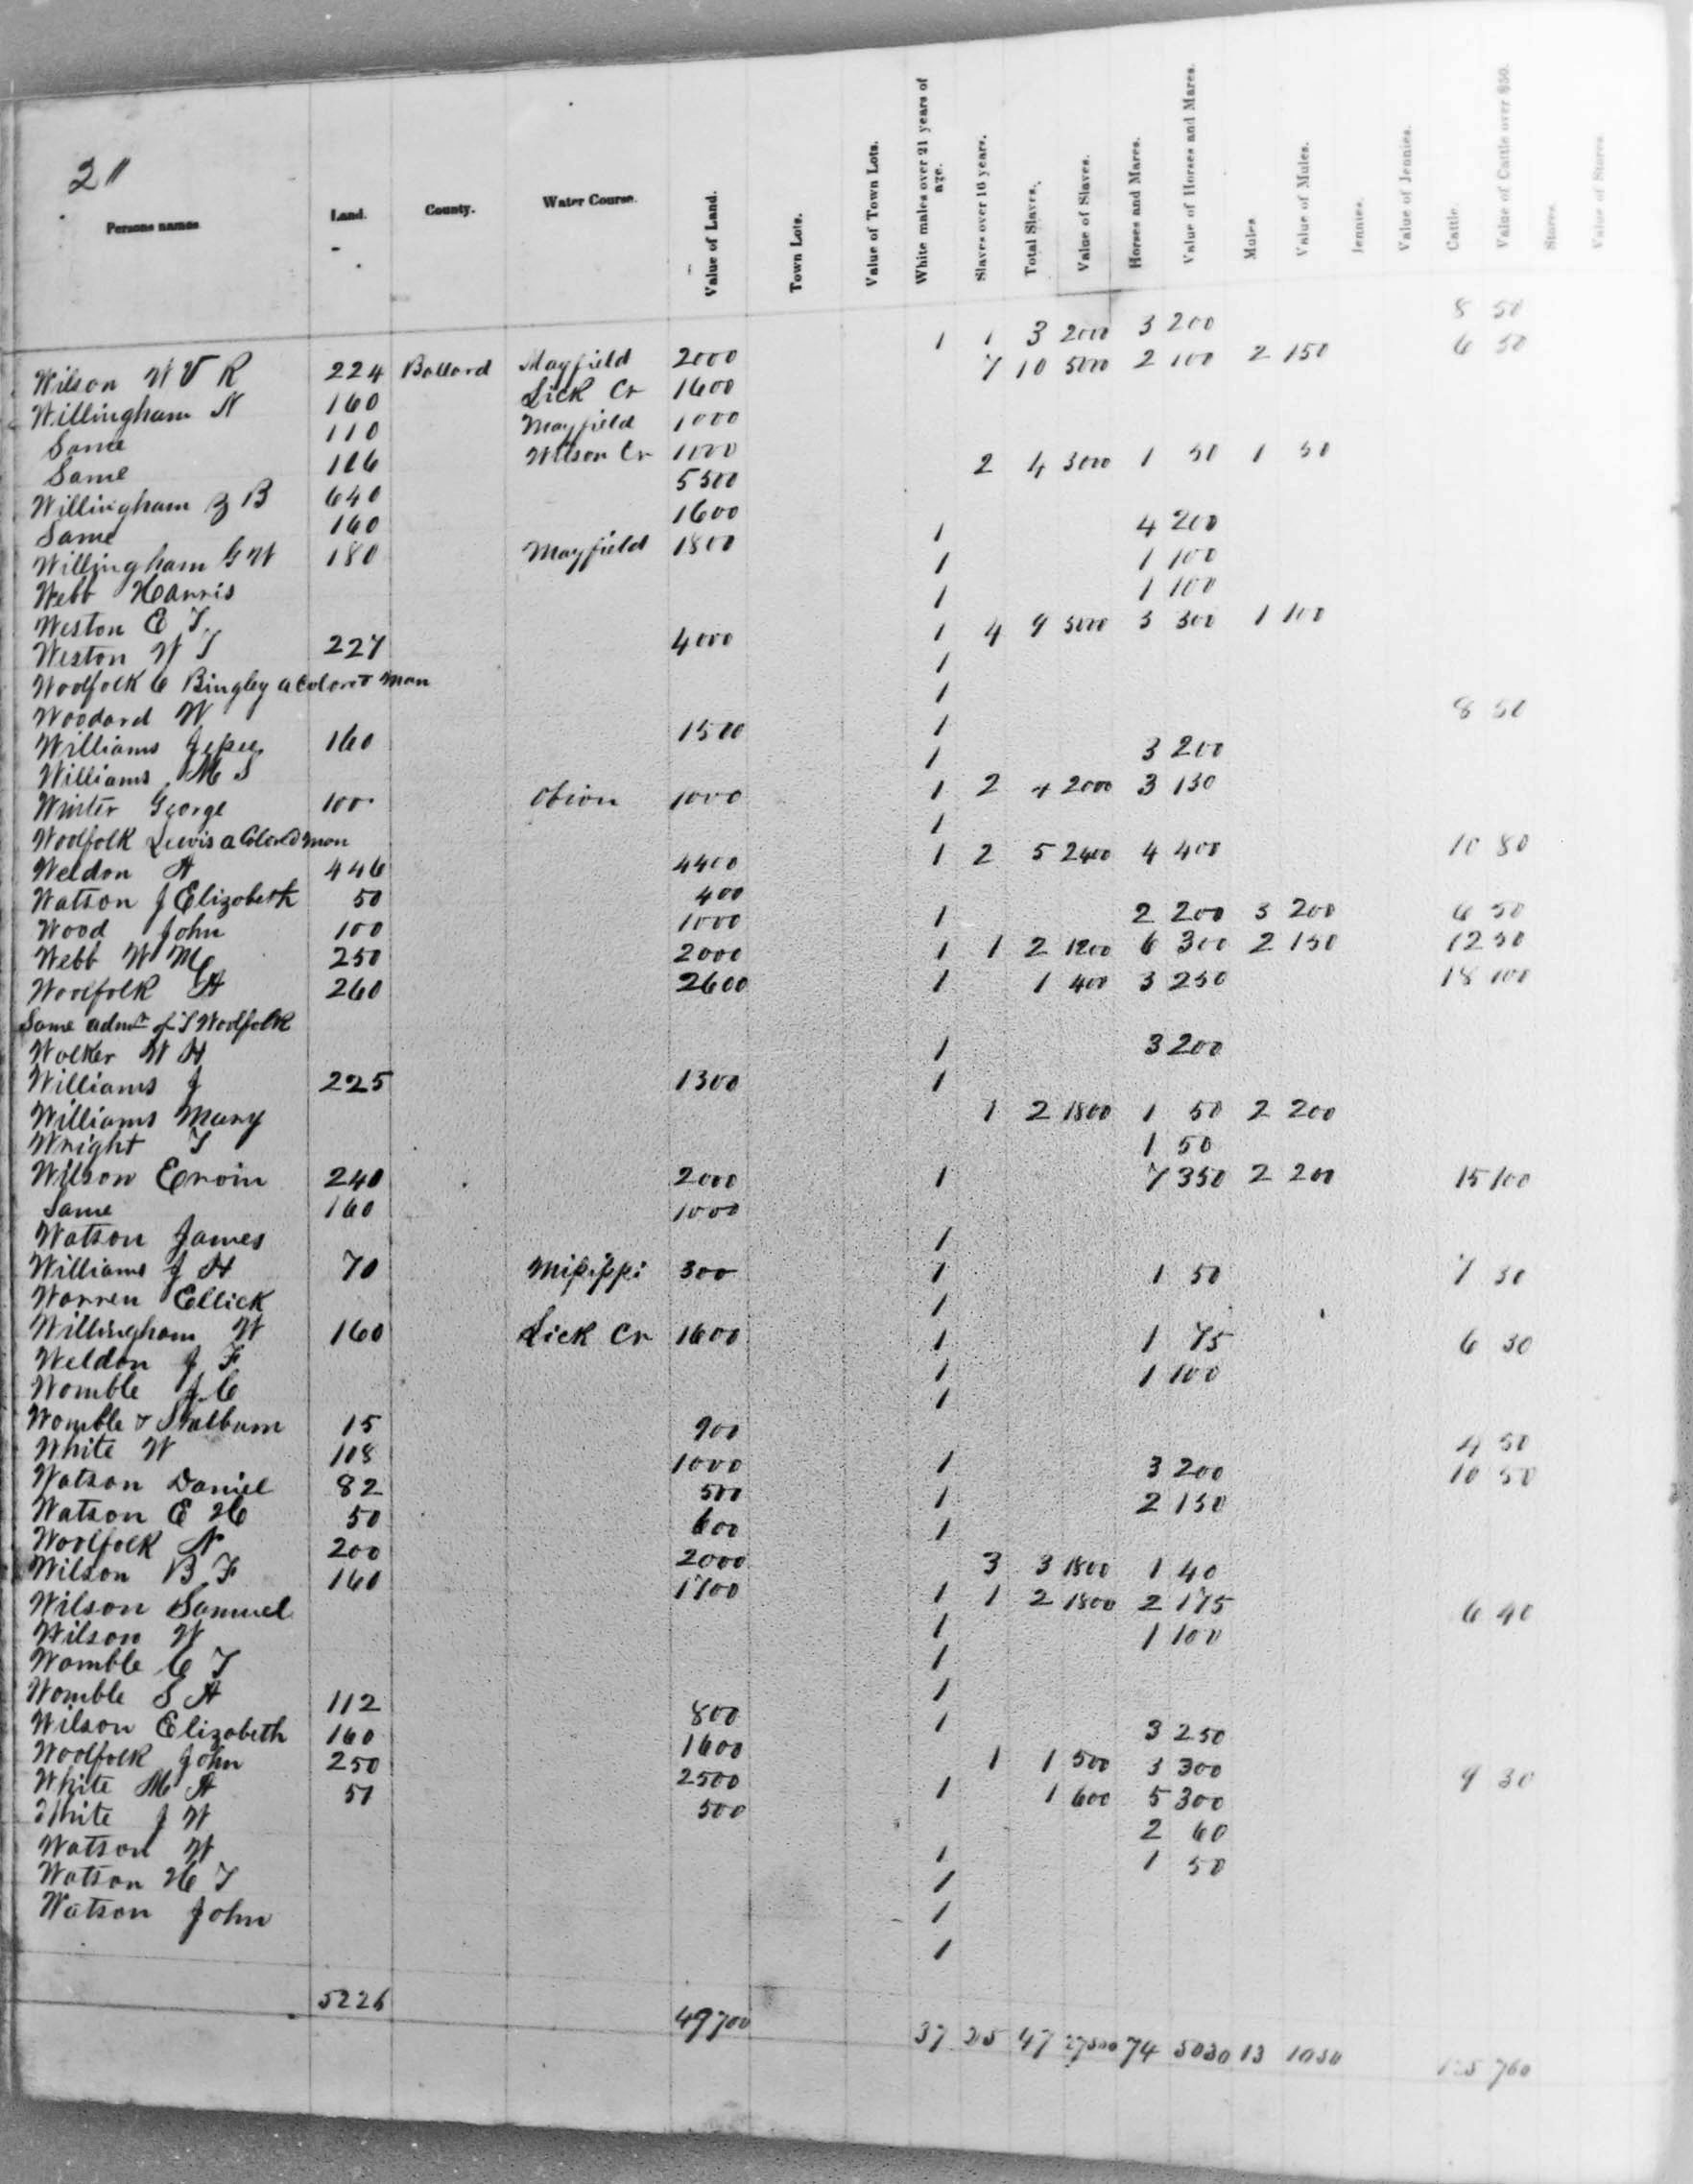 2 11
Persons names Land. County. Water Course. Value of Land. Town Lots. Value of Town Lots. White males over 21 years of age. Slaves over 16 years. Total Slaves. Value of Slaves. Horses and Mares. Value of Horses and Mares. Mules Value of Mules. Jennies. Value of Jennies. Cattle. Value of Cattle over $50. Stores. Value of Stores
Wilson W V R 224 Ballard Mayfield 2000 1 1 3 2000 3 200 8 50
Willingham N 160 Lick Cr 1600 7 10 5000 2 100 2 150 6 50
Same 110 Mayfield 1000
Same 116 Wilson Cr 1000
Willingham Z B 640 5500 2 4 3000 1 50 1 50
Same 160 1600
Willingham G W 180 Mayfield 1800 1 4 200
Webb Harris 1 1 100
Weston E T. 1 1 100
Weston W T 227 4000 1 4 9 5000 3 300 1 100
Woolfolk C Bingley a Colored man 1
Woodard W 1
Williams Jessee 160 1500 1 8 50
Williams M S 1 3 200
Winter George 100 Obion 1000 1 2 4 2000 3 150
Woolfolk Lewis a Colored man 1
Weldon A 446 4400 1 2 5 2400 4 400 10 80
Watson J Elizabeth 50 400
Wood John 100 1000 1 2 200 3 200 6 50
Webb W Mc 250 2000 1 1 2 1200 6 300 2 150 12 50
Woolfolk A 260 2600 1 1 400 3 250 18 100
Same admr of T Woolfolk
Walker W H 1 3 200
Williams J 225 1300 1
Williams Mary 1 2 1800 1 50 2 200
Wright T 1 50
Wilson Ervin 240 2000 1 7 350 2 200 15 100
Same 160 1000
Watson James 1
Williams J H 70 Missippi 300 1 1 50 7 50
Warren Ellick 1
Willingham W 160 Lick Cr 1600 1 1 75 6 30
Weldon J F. 1 1 100
Womble J. C 1
Womble & Stalbum 15 900
White W 108 1000 1 3 200 4 50
Watson Daniel 82 500 1 2 150 10 50
Watson E H 50 600 1
Woolfolk N 200 2000 3 3 1800 1 40
Wilson B F 160 1700 1 1 2 1800 2 175
Wilson Samuel 1 1 100 6 40
Wilson W 1
Womble C T 1
Womble S A 112 800 1 3 250
Wilson Elizabeth 160 1600 1 1 500 3 300
Woolfolk John 250 2500 1 1 600 5 300 9 30
White M A 51 500 2 60
White J W 1 1 50
Watson W 1
Watson H T 1
Watson John 1
5226 49700 37 25 47 27500 74 5030 13 1050 125 760